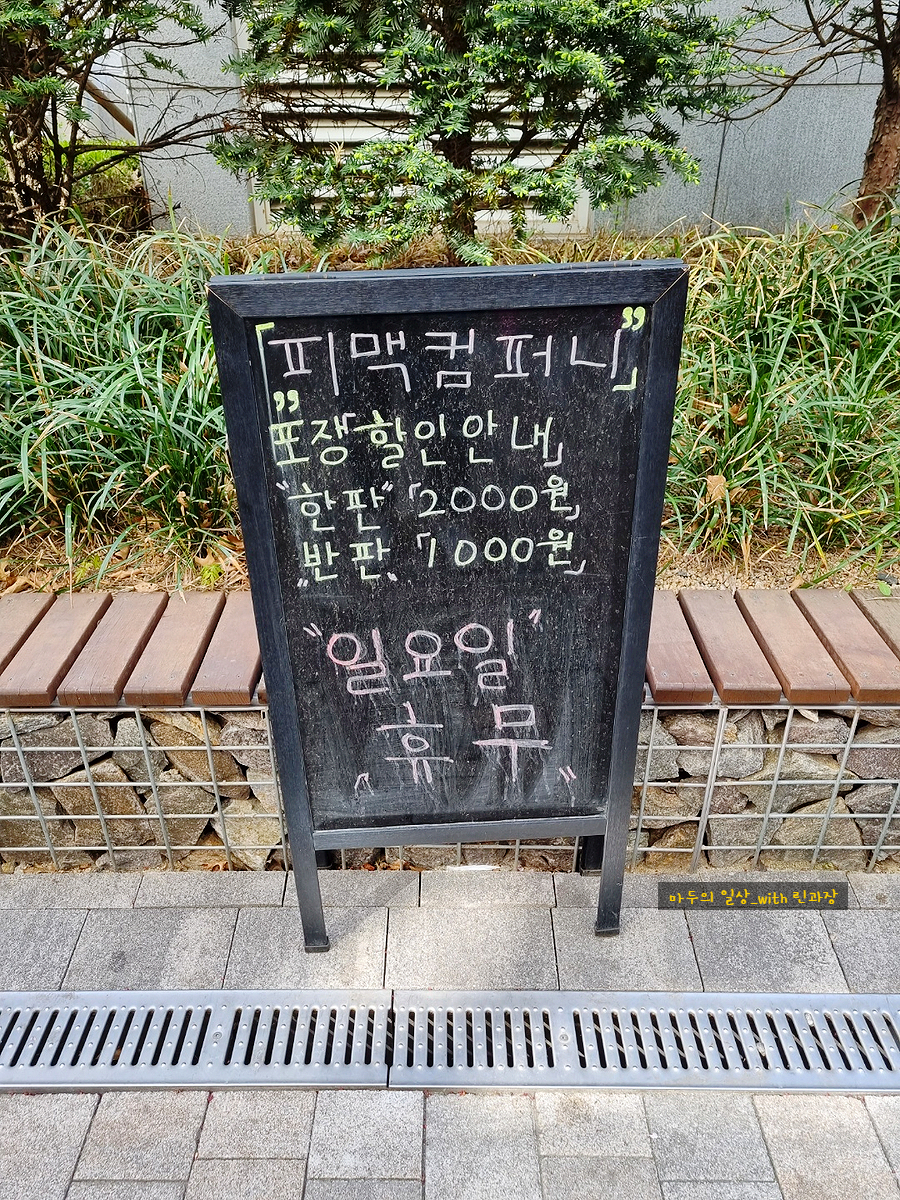 「피맥컴퍼니」”
”포장할인안내」
"한판" 「2000원」
"반판" 「1000원」
"일요일"
"휴무"
마두의 일상_with 린과장